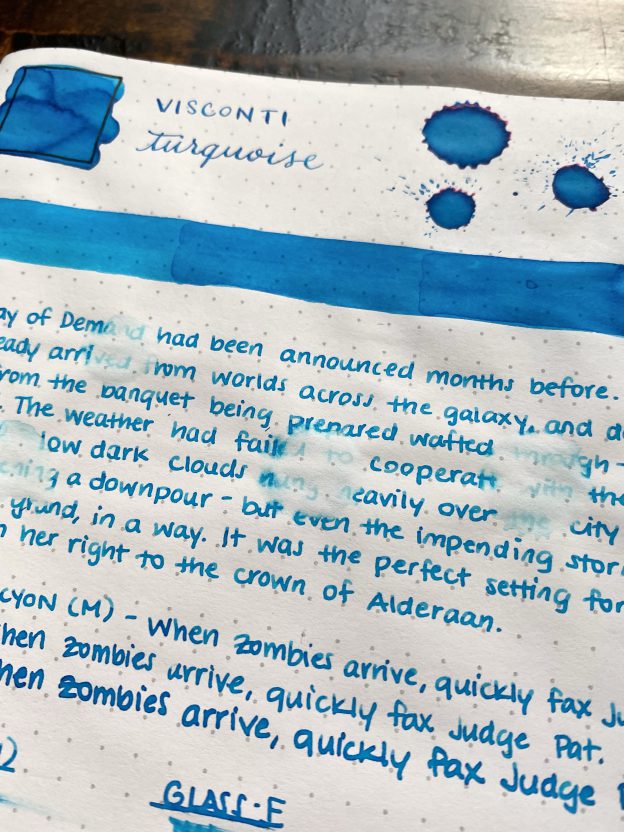 VISCONTI
turquoise
of Demand had been announced months before.
arrived from worlds across the galaxy, and
from the banquet being prepared wafted through
The weather had failed to cooperate with the
low dark clouds hung heavily over the city
a downpour - but even the impending
in a way. It was the perfect setting for
her right to the crown of Alderaan.
(M) - When zombies arrive, quickly fax
zombies arrive, quickly fax Judge Pat.
zombies arrive, quickly fax Judge
GLASS-F